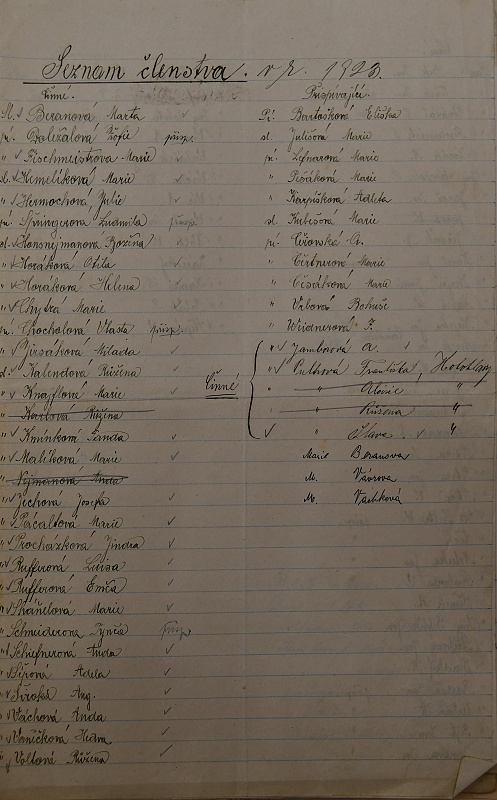 Seznam členstva. v r. 1923.
Činné.
Sl. Beranová Marta
pí. Doležalová Žofie přisp.
" Fischmeistrova Marie
sl. Hemelíková Marie
" Hermochova Julie
pí. Springerova Ludmila přisp.
sl. Honsnejmanova Božena
" Horáková Otila
" Horáková Helena
" Chytrá Marie
pí. Chocholová Vlasta přisp.
" Jirsáková Milada
sl. Kalendová Růžena
" Knajflová Marie
" Karlová Růžena
" Kminková Fanda
" Malíková Marie
" Nejmanová Anda
" Jechová Josefa
" Pácaltová Marie
" Procházková Jindra
" Rufferová Luisa
" Rufferová Emča
" Skářelová Marie
" Schmiderova Tynča přisp.
" Schiefnerová Anda
" Sípová Adéla
" Široká Ang.
" Váchová Anda
" Vaníčková Helva
" Voltová Růžena
Přispívající.
Pí. Bartošková Eliška
sl. Julišová Marie
pí. Lefnarová Marie
" Pešáková Marie
" Karpíšková Adléta
sl. Kubešová Marie
pí. Čeřovská A.
" Čertnerová Marie
" Císařová Marie
" Vrbová Bohuše
" Weidnerová F.
" Jamborová A.
Činné
" Čulková Františka, Holohlavy
" " Aloisie "
" " Růžena "
" Sláva "
Marie Beranova
M. Vávrova
M. Vashková